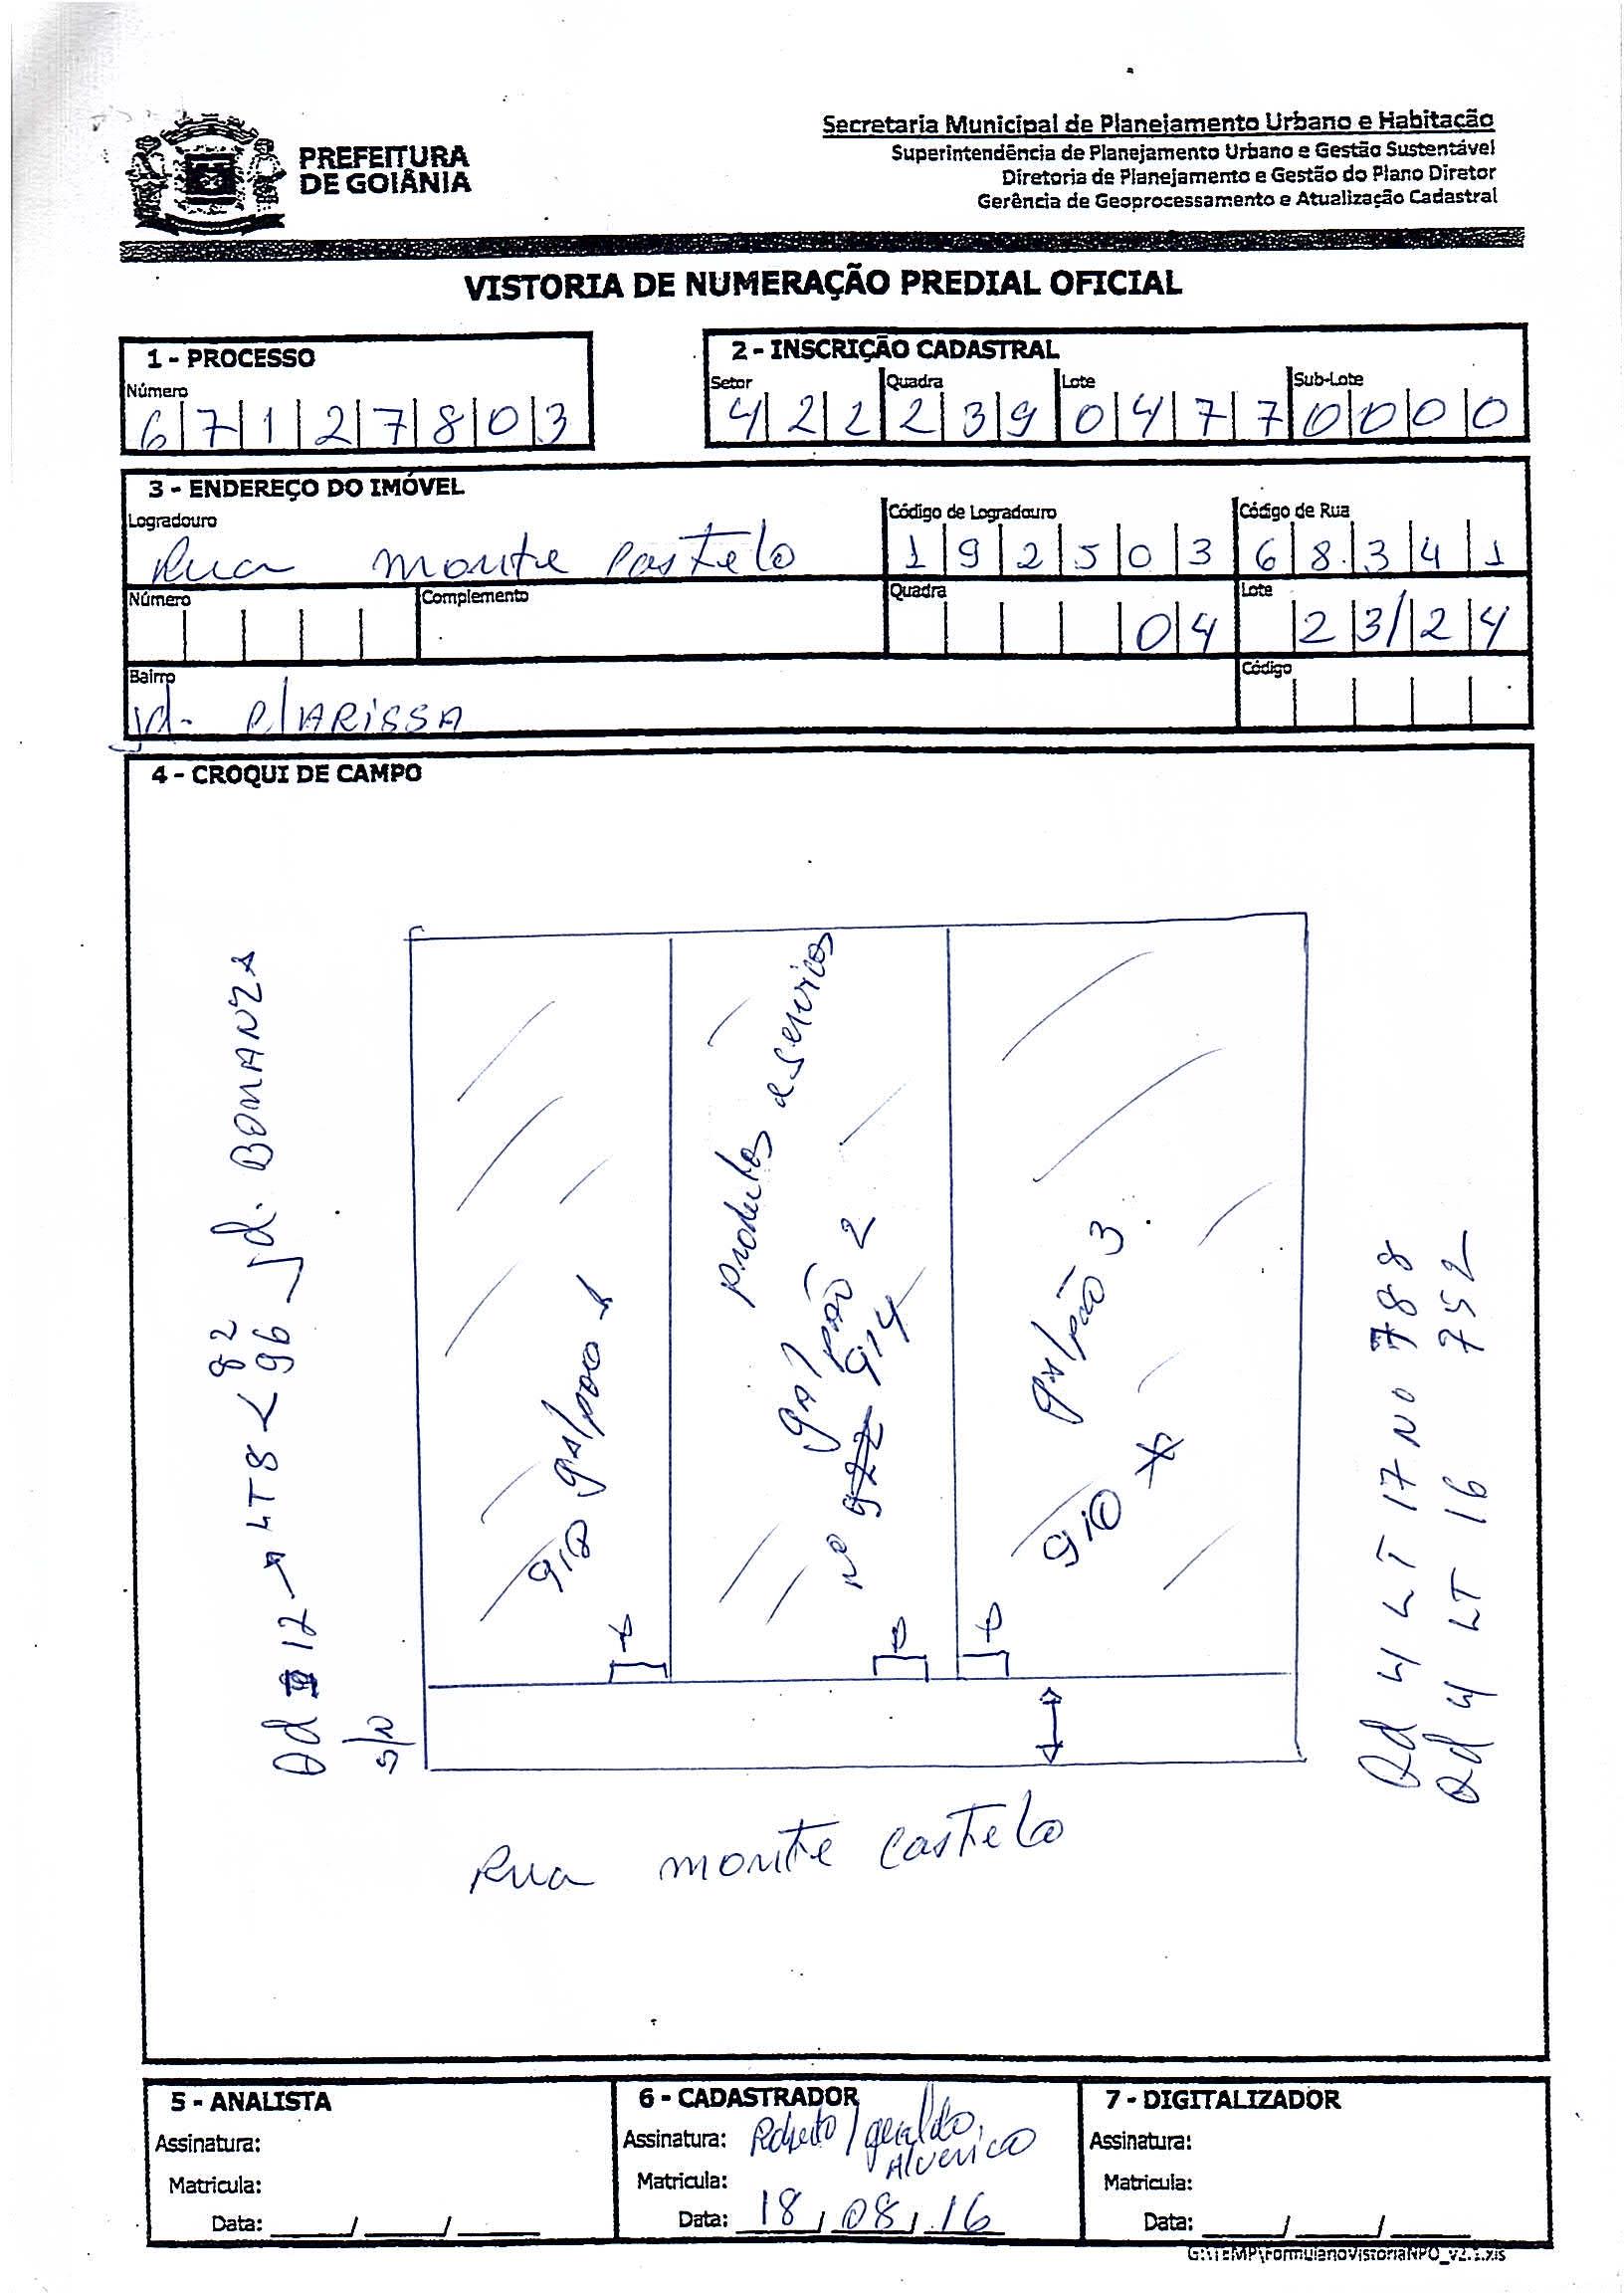 PREFEITURA
DE GOIÂNIA
Secretaria Municipal de Planejamento Urbano e Habitação
Superintendência de Planejamento Urbano e Gestão Sustentável
Diretoria de Planejamento e Gestão do Plano Diretor
Gerência de Geoprocessamento e Atualização Cadastral
VISTORIA DE NUMERAÇÃO PREDIAL OFICIAL
1 - PROCESSO
Número
6 7 1 2 7 8 0 3
2 - INSCRIÇÃO CADASTRAL
Setor Quadra Lote Sub-Lote
4 2 2 2 3 9 0 4 7 7 0 0 0 0
3 - ENDEREÇO DO IMÓVEL
Logradouro Código de Logradouro Código de Rua
Rua monte Castelo 1 9 2 5 0 3 6 8 3 4 1
Número Complemento Quadra Lote
04 23/24
Bairro Código
jd. ClARISSA
4 - CROQUI DE CAMPO
Qd 12 → LT 8 < 82 96 jd. BONANZA
S/N
918 galpão 1
produtos e serviços
galpão 2
Nº 922 914
galpão 3
910
Qd 4 LT 17 Nº 788
Qd 4 LT 16 752
Rua monte Castelo
5 - ANALISTA
Assinatura:
Matricula:
Data: ____/____/____
6 - CADASTRADOR
Assinatura: Roberto / geraldo,
Alverico
Matricula:
Data: 18/08/16
7 - DIGITALIZADOR
Assinatura:
Matricula:
Data: ____/____/____
G:\TEMP\FormularioVistoriaNPO_v2.1.xls